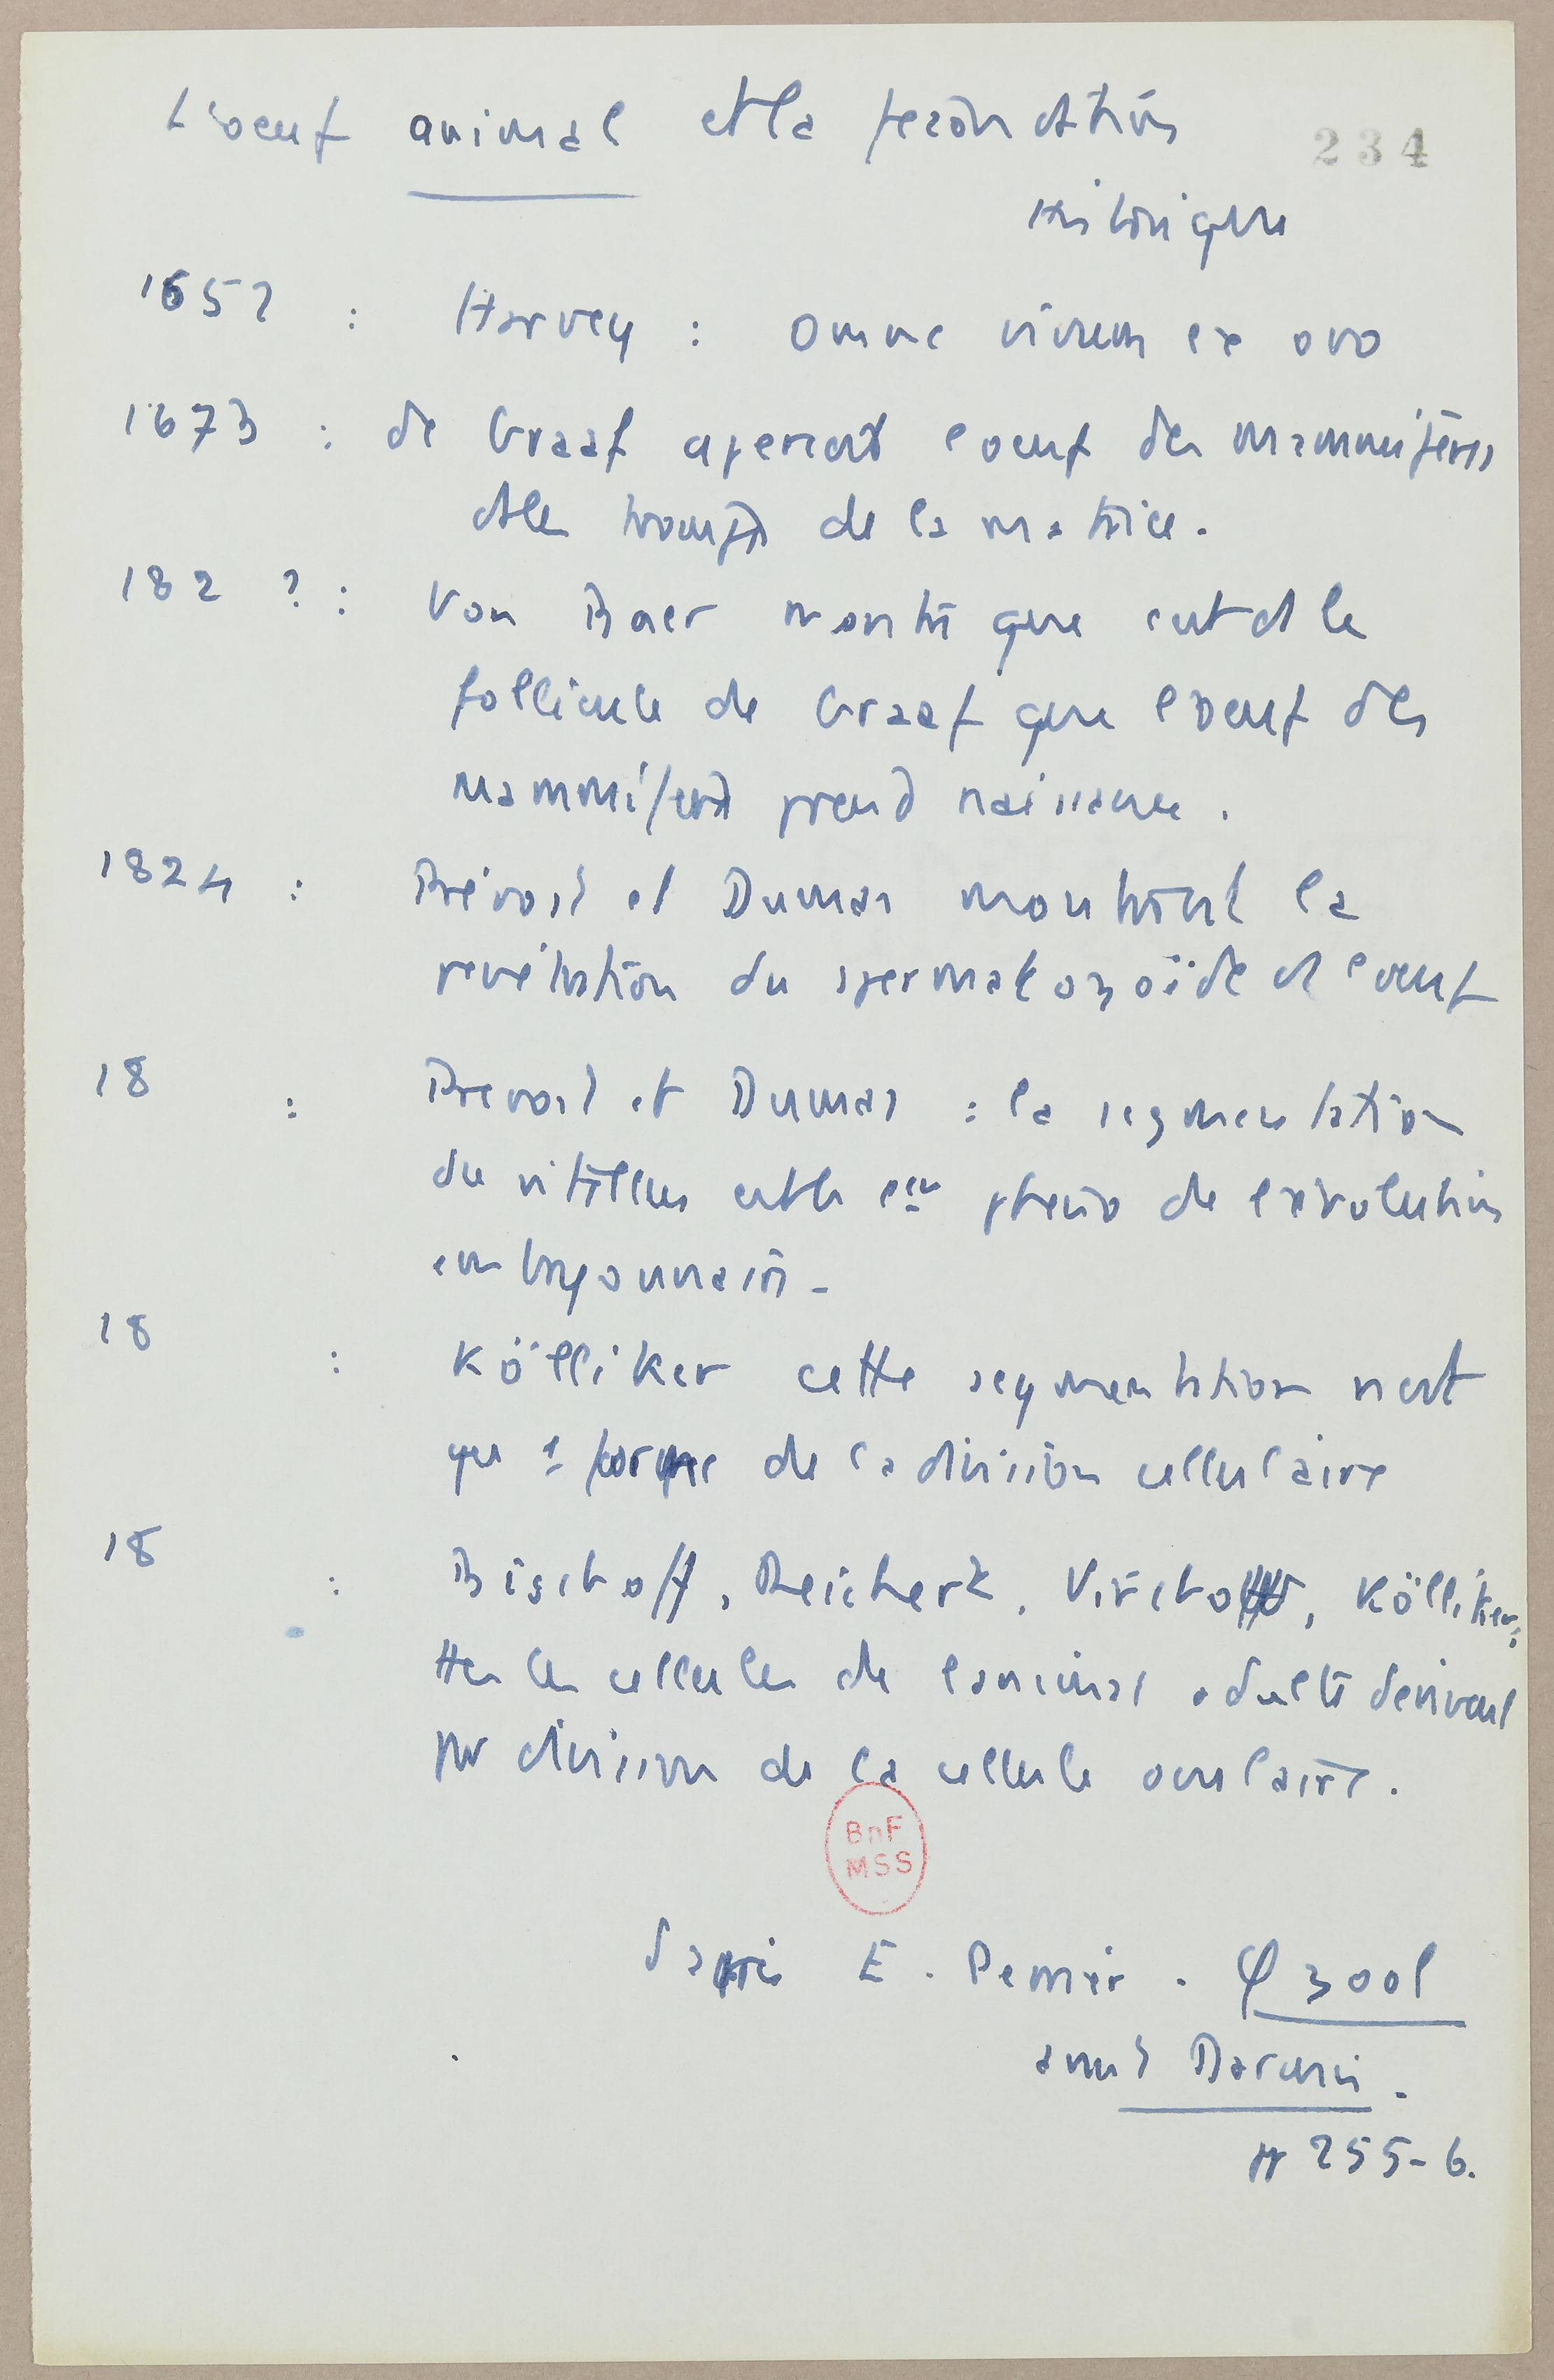 L'oeuf animal et la fécondation
234
Historique
1652 : Harvey : omne vivum ex ovo
1673 : de Graaf aperçoit l'oeuf des mammifères
et les trompes de la matrice.
182 ? : Von Baer montre que c'est ds le
follicule de Graaf que l'oeuf des
mammifères prend naissance.
1824 : Prévost et Dumas montrent la
pénétration du spermatozoïde ds l'oeuf
18 : Prévost et Dumas : la segmentation
du vitellus est le 1er phéno de l'évolution
embryonnaire -
18 : Kölliker cette segmentation n'est
qu' 1 forme de la division cellulaire
18 : Bischoff, Reichert, Virchow, Kölliker :
ttes les cellules de l'animal adulte dérivent
par division de la cellule ovulaire.
BnF
MSS
d'après E. Perrier. φ zool
avant Darwin.
pp 255-6.